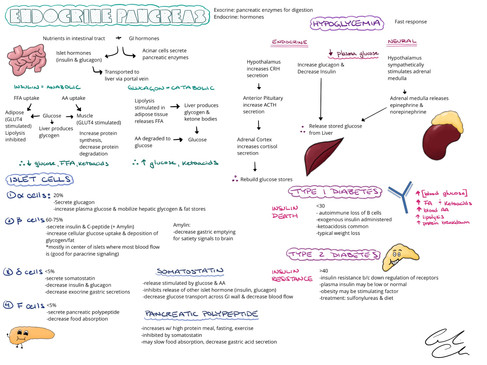 ENDOCRINE PANCREAS
Exocrine: pancreatic enzymes for digestion
Endocrine: hormones
Nutrients in intestinal tract
GI hormones
Islet hormones
(insulin & glucagon)
Acinar cells secrete
pancreatic enzymes
Transported to
liver via portal vein
INSULIN = ANABOLIC
FFA uptake
AA uptake
Adipose
(GLUT4
stimulated)
Lipolysis
inhibited
Glucose
Liver produces
glycogen
Muscle
(GLUT4 stimulated)
Increase protein
synthesis,
decrease protein
degradation
∴ ↓ glucose, FFA, ketoacids
GLUCAGON = CATABOLIC
Lipolysis
stimulated in
adipose tissue
releases FFA
Liver produces
glycogen &
ketone bodies
AA degraded to
glucose
Glucose
∴ ↑ glucose, ketoacids
HYPOGLYCEMIA
Fast response
ENDOCRINE
NEURAL
↓ plasma glucose
Hypothalamus
increases CRH
secretion
Increase glucagon &
Decrease Insulin
Hypothalamus
sympathetically
stimulates adrenal
medulla
Anterior Pituitary
increase ACTH
secretion
Adrenal medulla releases
epinephrine &
norepinephrine
∴ Release stored glucose
from Liver
Adrenal Cortex
increases cortisol
secretion
∴ Rebuild glucose stores
ISLET CELLS
1 α cells: 20%
-Secrete glucagon
-increase plasma glucose & mobilize hepatic glycogen & fat stores
2 β cells 60-75%
-secrete insulin & C-peptide (+ Amylin)
-increase cellular glucose uptake & deposition of
glycogen/fat
*mostly in center of islets where most blood flow
is (good for paracrine signaling)
Amylin:
-decrease gastric emptying
for satiety signals to brain
3 δ cells <5%
-secrete somatostatin
-decrease insulin & glucagon
-decrease exocrine gastric secretions
4 F cells <5%
-secrete pancreatic polypeptide
-decrease food absorption
SOMATOSTATIN
-release stimulated by glucose & AA
-inhibits release of other islet hormone (insulin, glucagon)
-decrease glucose transport across GI wall & decrease blood flow
PANCREATIC POLYPEPTIDE
-increases w/ high protein meal, fasting, exercise
-inhibited by somatostatin
-may slow food absorption, decrease gastric acid secretion
TYPE 1 DIABETES
INSULIN
DEATH
<30
- autoimmune loss of B cells
-exogenous insulin administered
-ketoacidosis common
-typical weight loss
↑ [blood glucose]
↑ FA ↑ Ketoacids
↑ blood AA
↑ lipolysis
↑ protein breakdown
TYPE 2 DIABETES
INSULIN
RESISTANCE
>40
-insulin resistance b/c down regulation of receptors
-plasma insulin may be low or normal
-obesity may be stimulating factor
-treatment: sulfonylureas & diet